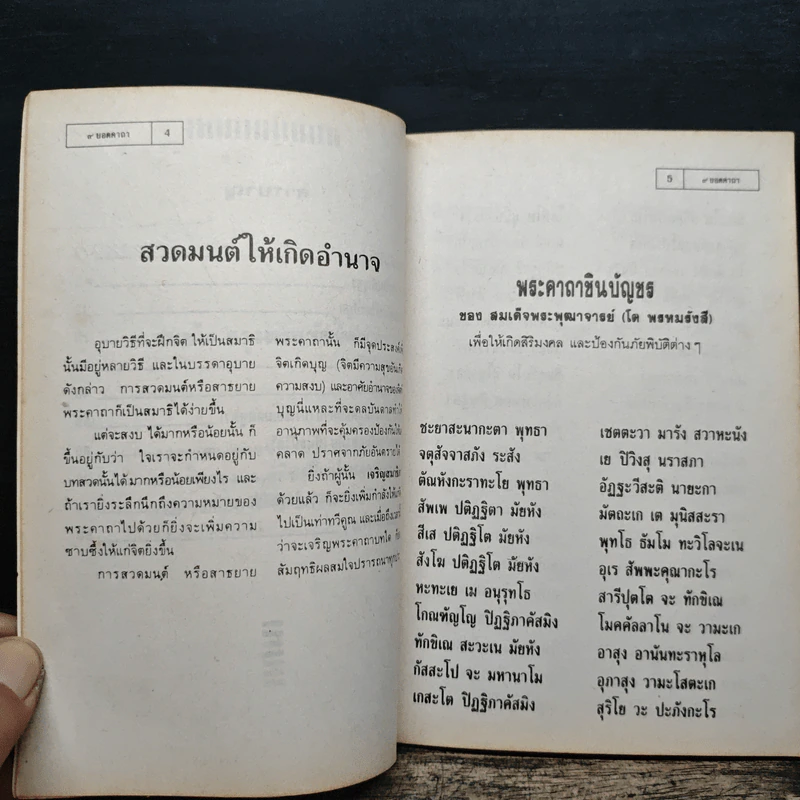 ๙ ยอดคาถา 4
สวดมนต์ให้เกิดอำนาจ
อุบายวิธีที่จะฝึกจิต ให้เป็นสมาธิ
นั้นมีอยู่หลายวิธี และในบรรดาอุบาย
ดังกล่าว การสวดมนต์หรือสาธยาย
พระคาถาก็เป็นสมาธิได้ง่ายขึ้น
แต่จะสงบ ได้มากหรือน้อยนั้น ก็
ขึ้นอยู่กับว่า ใจเราจะกำหนดอยู่กับ
บทสวดนั้นได้มากหรือน้อยเพียงไร และ
ถ้าเรายิ่งระลึกนึกถึงความหมายของ
พระคาถาไปด้วยก็ยิ่งจะเพิ่มความ
ซาบซึ้งให้แก่จิตยิ่งขึ้น
การสวดมนต์ หรือสาธยาย
พระคาถานั้น ก็มีจุดประสงค์
จิตเกิดบุญ (จิตมีความสุขอัน
ความสงบ) และอาศัยอำนาจของ
บุญนี่แหละที่จะดลบันดาล
อานุภาพที่จะคุ้มครองป้องกัน
คลาด ปราศจากภัยอันตราย
ยิ่งถ้าผู้นั้น เจริญ
ด้วยแล้ว ก็จะยิ่งเพิ่มกำลังให้
ไปเป็นเท่าทวีคูณ และเมื่อ
ว่าจะเจริญพระคาถาบทใด
สัมฤทธิผลสมใจปรารถนา
5 ๙ ยอดคาถา
พระคาถาชินบัญชร
ของ สมเด็จพระพุฒาจารย์ (โต พรหมรังสี)
เพื่อให้เกิดสิริมงคล และป้องกันภัยพิบัติต่าง ๆ
ชะยาสะนากะตา พุทธา เชตตะวา มารัง สวาหะนัง
จตุสัจจาสภัง ระสัง เย ปิวิงสุ นราสภา
ตัณหังกะราทะโย พุทธา อัฏฐะวีสะติ นายะกา
สัพเพ ปติฏฐิตา มัยหัง มัตถะเก เต มุนิสสะรา
สีเส ปติฏฐิโต มัยหัง พุทโธ ธัมโม ทะวิโลจะเน
สังโฆ ปติฏฐิโต มัยหัง อุเร สัพพะคุณากะโร
หะทะเย เม อนุรุทโธ สารีปุตโต จะ ทักขิเณ
โกณฑัญโญ ปิฏฐิภาคัสมิง โมคคัลลาโน จะ วามะเก
ทักขิเณ สะวะเน มัยหัง อาสุง อานันทะราหุโล
กัสสะโป จะ มหานาโม อุภาสุง วามะโสตะเก
เกสะโต ปิฏฐิภาคัสมิง สุริโย วะ ปะภังกะโร